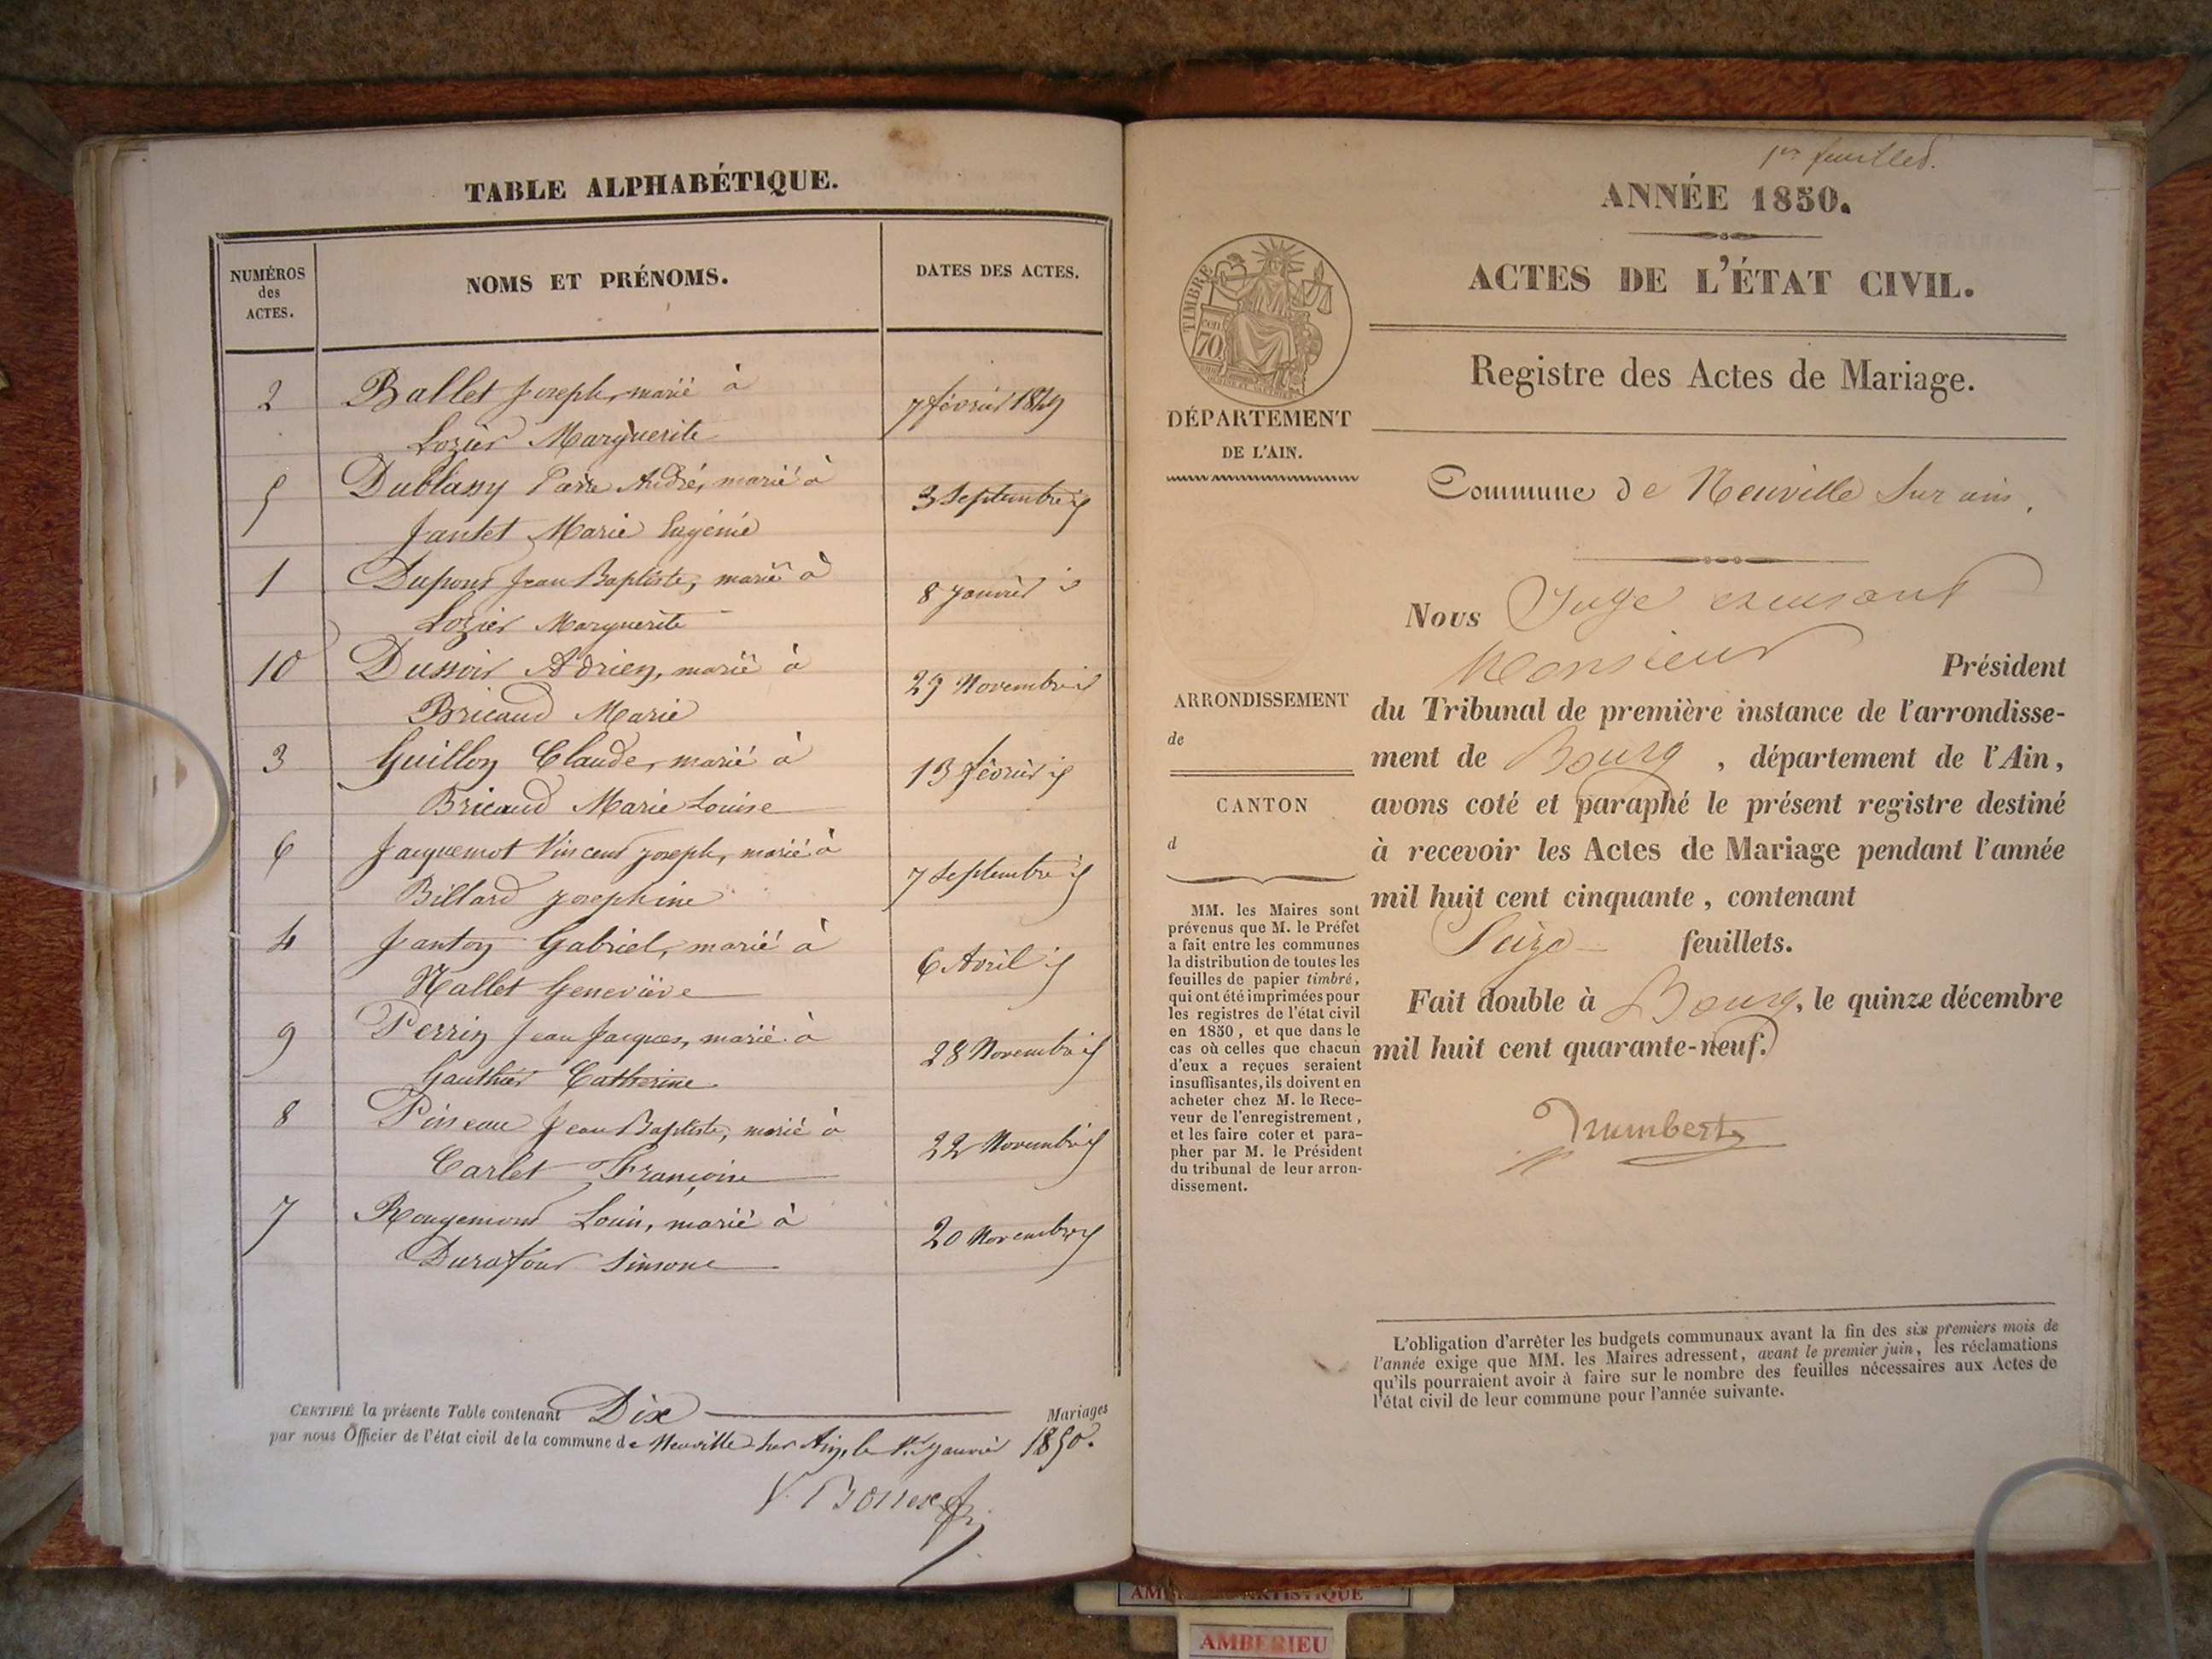 TABLE ALPHABÉTIQUE.
NUMÉROS
des
ACTES.
NOMS ET PRÉNOMS.
DATES DES ACTES.
2 Ballet Joseph, marié à 7 février 1849
Lozier Marguerite
5 Dublassy Pierre André, marié à 3 Septembre id
Jantet Marie Eugénie
1 Dupont Jean Baptiste, marié à 8 Janvier id
Lozier Marguerite
10 Dussoir Adrien, marié à 29 Novembre id
Bricaud Marie
3 Guillon Claude, marié à 13 février id
Bricaud Marie Louise
6 Jacquemot Vincent Joseph, marié à 7 Septembre id
Billard Josephine
4 Janton Gabriel, marié à 6 Avril id
Hallet Geneviève
9 Perrin Jean Jacques, marié à 28 Novembre id
Gauthier Catherine
8 Jean Baptiste, marié à 22 Novembre id
Carlet Françoise
7 Rougemont Louis, marié à 20 Novembre id
Durafour Simone
CERTIFIÉ la présente Table contenant Dix Mariages
par nous Officier de l'état civil de la commune de Neuville sur Ain, le 1er Janvier 1850.
1er feuillet.
ANNÉE 1850.
ACTES DE L'ÉTAT CIVIL.
Registre des Actes de Mariage.
TIMBRE
cen
70
DÉPARTEMENT
DE L'AIN.
ARRONDISSEMENT
de
CANTON
d
MM. les Maires sont
prévenus que M. le Préfet
a fait entre les communes
la distribution de toutes les
feuilles de papier timbré,
qui ont été imprimées pour
les registres de l'état civil
en 1850, et que dans le
cas où celles que chacun
d'eux a reçues seraient
insuffisantes, ils doivent en
acheter chez M. le Rece-
veur de l'enregistrement,
et les faire coter et para-
pher par M. le Président
du tribunal de leur arron-
dissement.
Commune de Neuville sur ain.
Nous Juge excusant
Monsieur Président
du Tribunal de première instance de l'arrondisse-
ment de Bourg, département de l'Ain,
avons coté et paraphé le présent registre destiné
à recevoir les Actes de Mariage pendant l'année
mil huit cent cinquante, contenant
Seize feuillets.
Fait double à Bourg, le quinze décembre
mil huit cent quarante-neuf.
L'obligation d'arrêter les budgets communaux avant la fin des six premiers mois de
l'année exige que MM. les Maires adressent, avant le premier juin, les réclamations
qu'ils pourraient avoir à faire sur le nombre des feuilles nécessaires aux Actes de
l'état civil de leur commune pour l'année suivante.
AMBERIEU